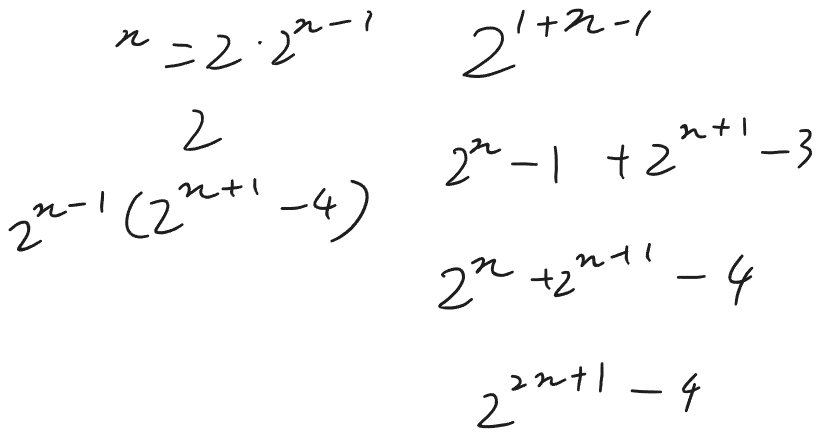 n = 2 · 2^{n-1}
2
2^{n-1} (2^{n+1} - 4)
2^{1+n-1}
2^n - 1 + 2^{n+1} - 3
2^n + 2^{n+1} - 4
2^{2n+1} - 4